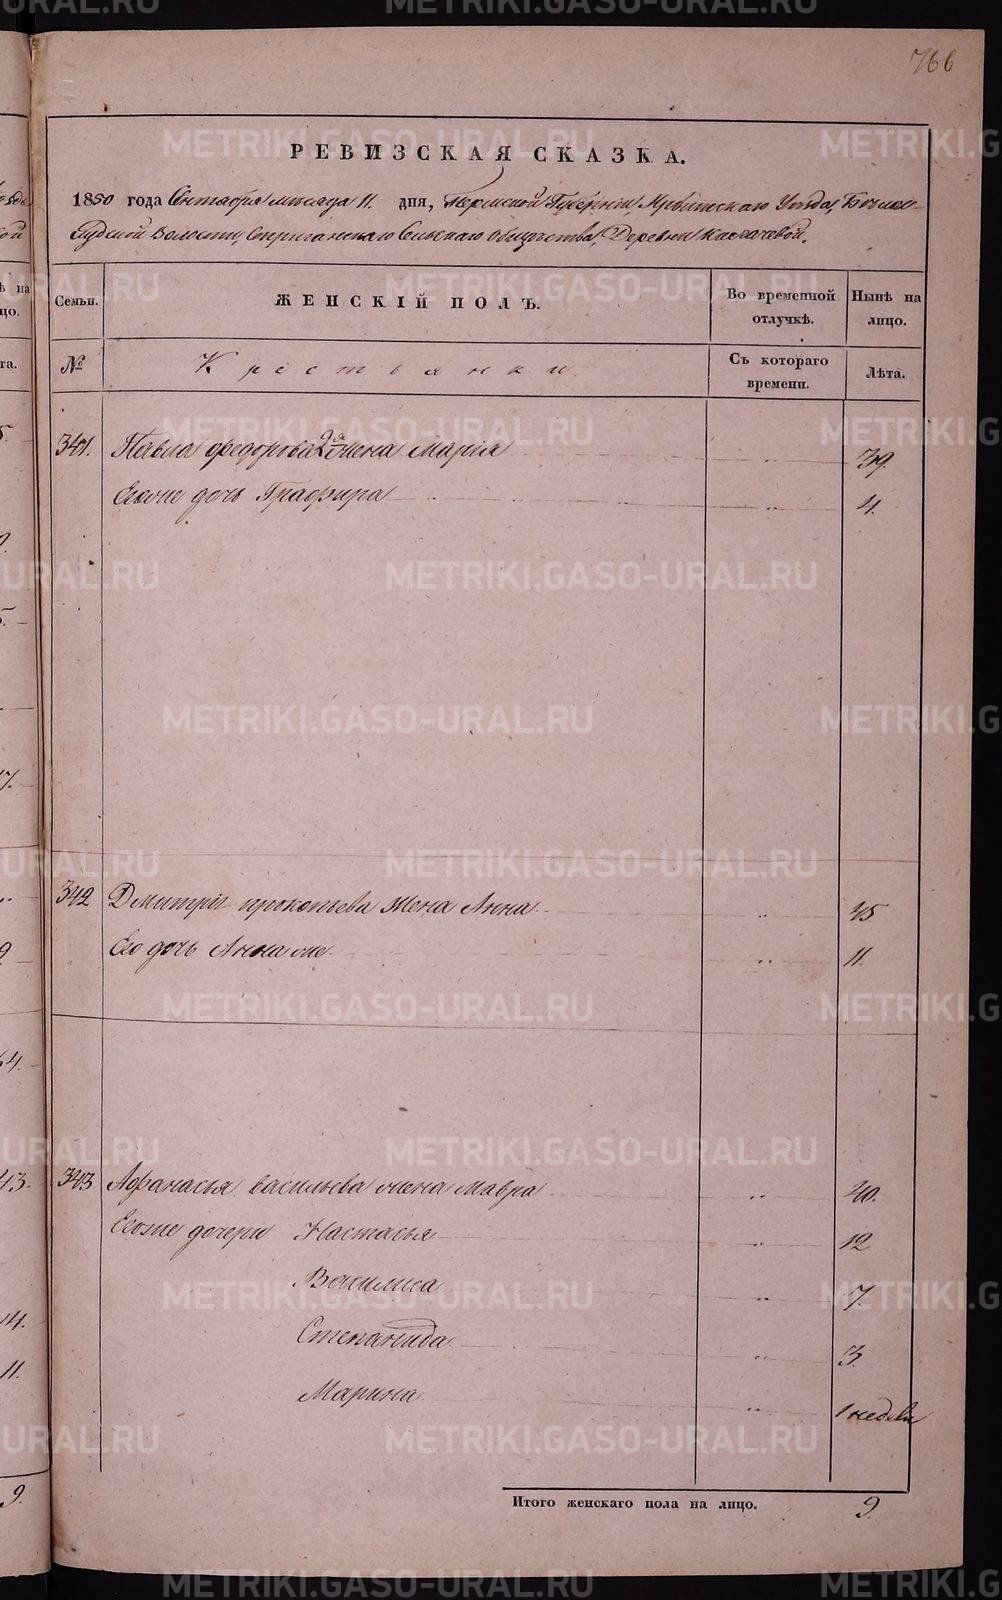 766
РЕВИЗСКАЯ СКАЗКА.
1850 года Сентября месяца 11. дня, Пермской Губернии, Ирбитскаго Уезда,
Волости, Сельскаго общества, Деревни
Семьи. ЖЕНСКІЙ ПОЛЪ. Во временной отлучкѣ. Нынѣ на лицо.
№ Крестьянки Съ котораго времени. Лѣта.
341. Павла Федорова 2я жена Марія 39.
Его же дочь Глафира 4.
342 Дмитрія прокопьева жена Анна 45
Его дочь Анна же 11.
343 Афанасья васильева жена мавра 40.
Его же дочери Настасья 12
Василиса 7.
Степанида 3.
Марина 1 недели
Итого женскаго пола на лицо. 9.
METRIKI.GASO-URAL.RU